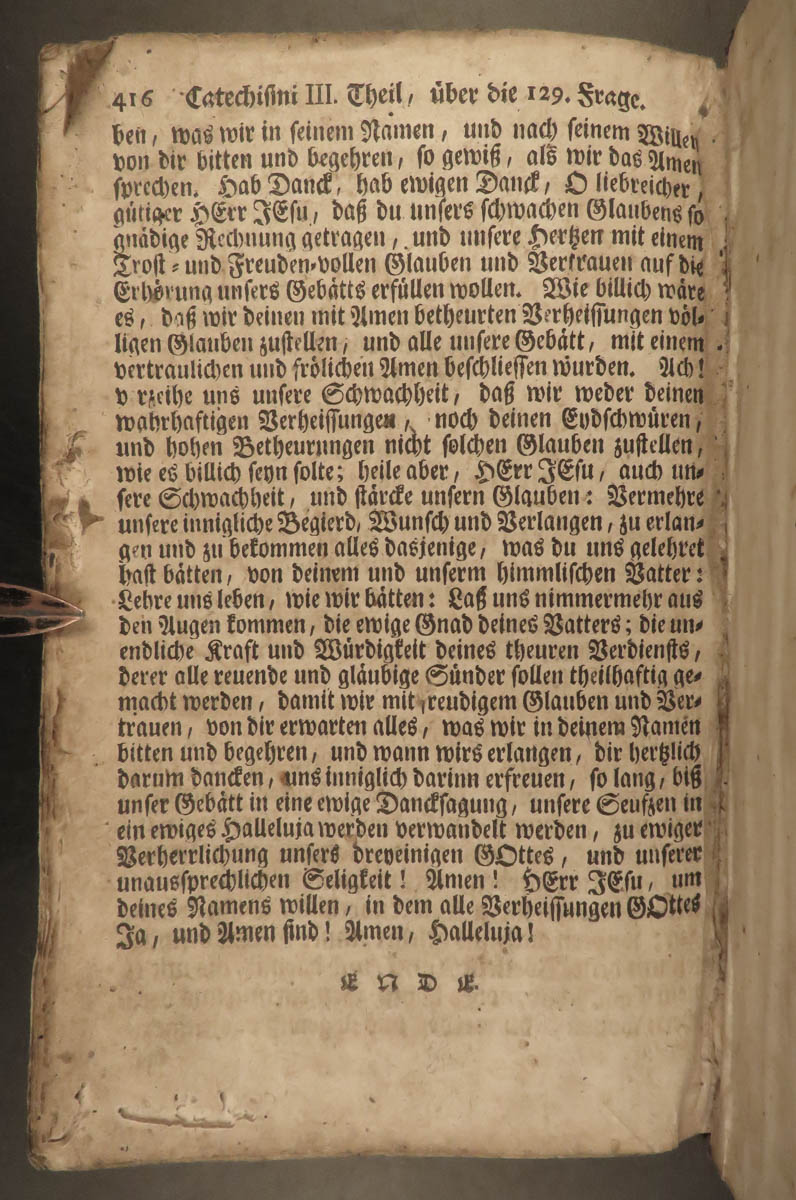 416 Catechismi III. Theil, über die 129. Frage.
ben, was wir in seinem Namen, und nach seinem Willen
von dir bitten und begehren, so gewiß, als wir das Amen
sprechen. Hab Danck, hab ewigen Danck, O liebreicher,
gütiger HErr JEsu, daß du unsers schwachen Glaubens so
gnädige Rechnung getragen, und unsere Hertzen mit einem
Trost- und Freuden-vollen Glauben und Vertrauen auf die
Erhörung unsers Gebätts erfüllen wollen. Wie billich wäre
es, daß wir deinen mit Amen betheurten Verheissungen völ-
ligen Glauben zustellen, und alle unsere Gebätt, mit einem
vertraulichen und frölichen Amen beschliessen wurden. Ach!
v rzeihe uns unsere Schwachheit, daß wir weder deinen
wahrhaftigen Verheissungen, noch deinen Eydschwüren,
und hohen Betheurungen nicht solchen Glauben zustellen,
wie es billich seyn solte; heile aber, HErr JEsu, auch un-
sere Schwachheit, und stärcke unsern Glauben: Vermehre
unsere innigliche Begierd, Wunsch und Verlangen, zu erlan-
gen und zu bekommen alles dasjenige, was du uns gelehret
hast bätten, von deinem und unserm himmlischen Vatter:
Lehre uns leben, wie wir bätten: Laß uns nimmermehr aus
den Augen kommen, die ewige Gnad deines Vatters; die un-
endliche Kraft und Würdigkeit deines theuren Verdiensts,
derer alle reuende und gläubige Sünder sollen theilhaftig ge-
macht werden, damit wir mit reudigem Glauben und Ver-
trauen, von dir erwarten alles, was wir in deinem Namen
bitten und begehren, und wann wirs erlangen, dir hertzlich
darum dancken, uns inniglich darinn erfreuen, so lang, biß
unser Gebätt in eine ewige Dancksagung, unsere Seufzen in
ein ewiges Halleluja werden verwandelt werden, zu ewiger
Verherrlichung unsers dreyeinigen GOttes, und unserer
unaussprechlichen Seligkeit! Amen! HErr JEsu, um
deines Namens willen, in dem alle Verheissungen GOttes
Ja, und Amen sind! Amen, Halleluja!
E N D E.